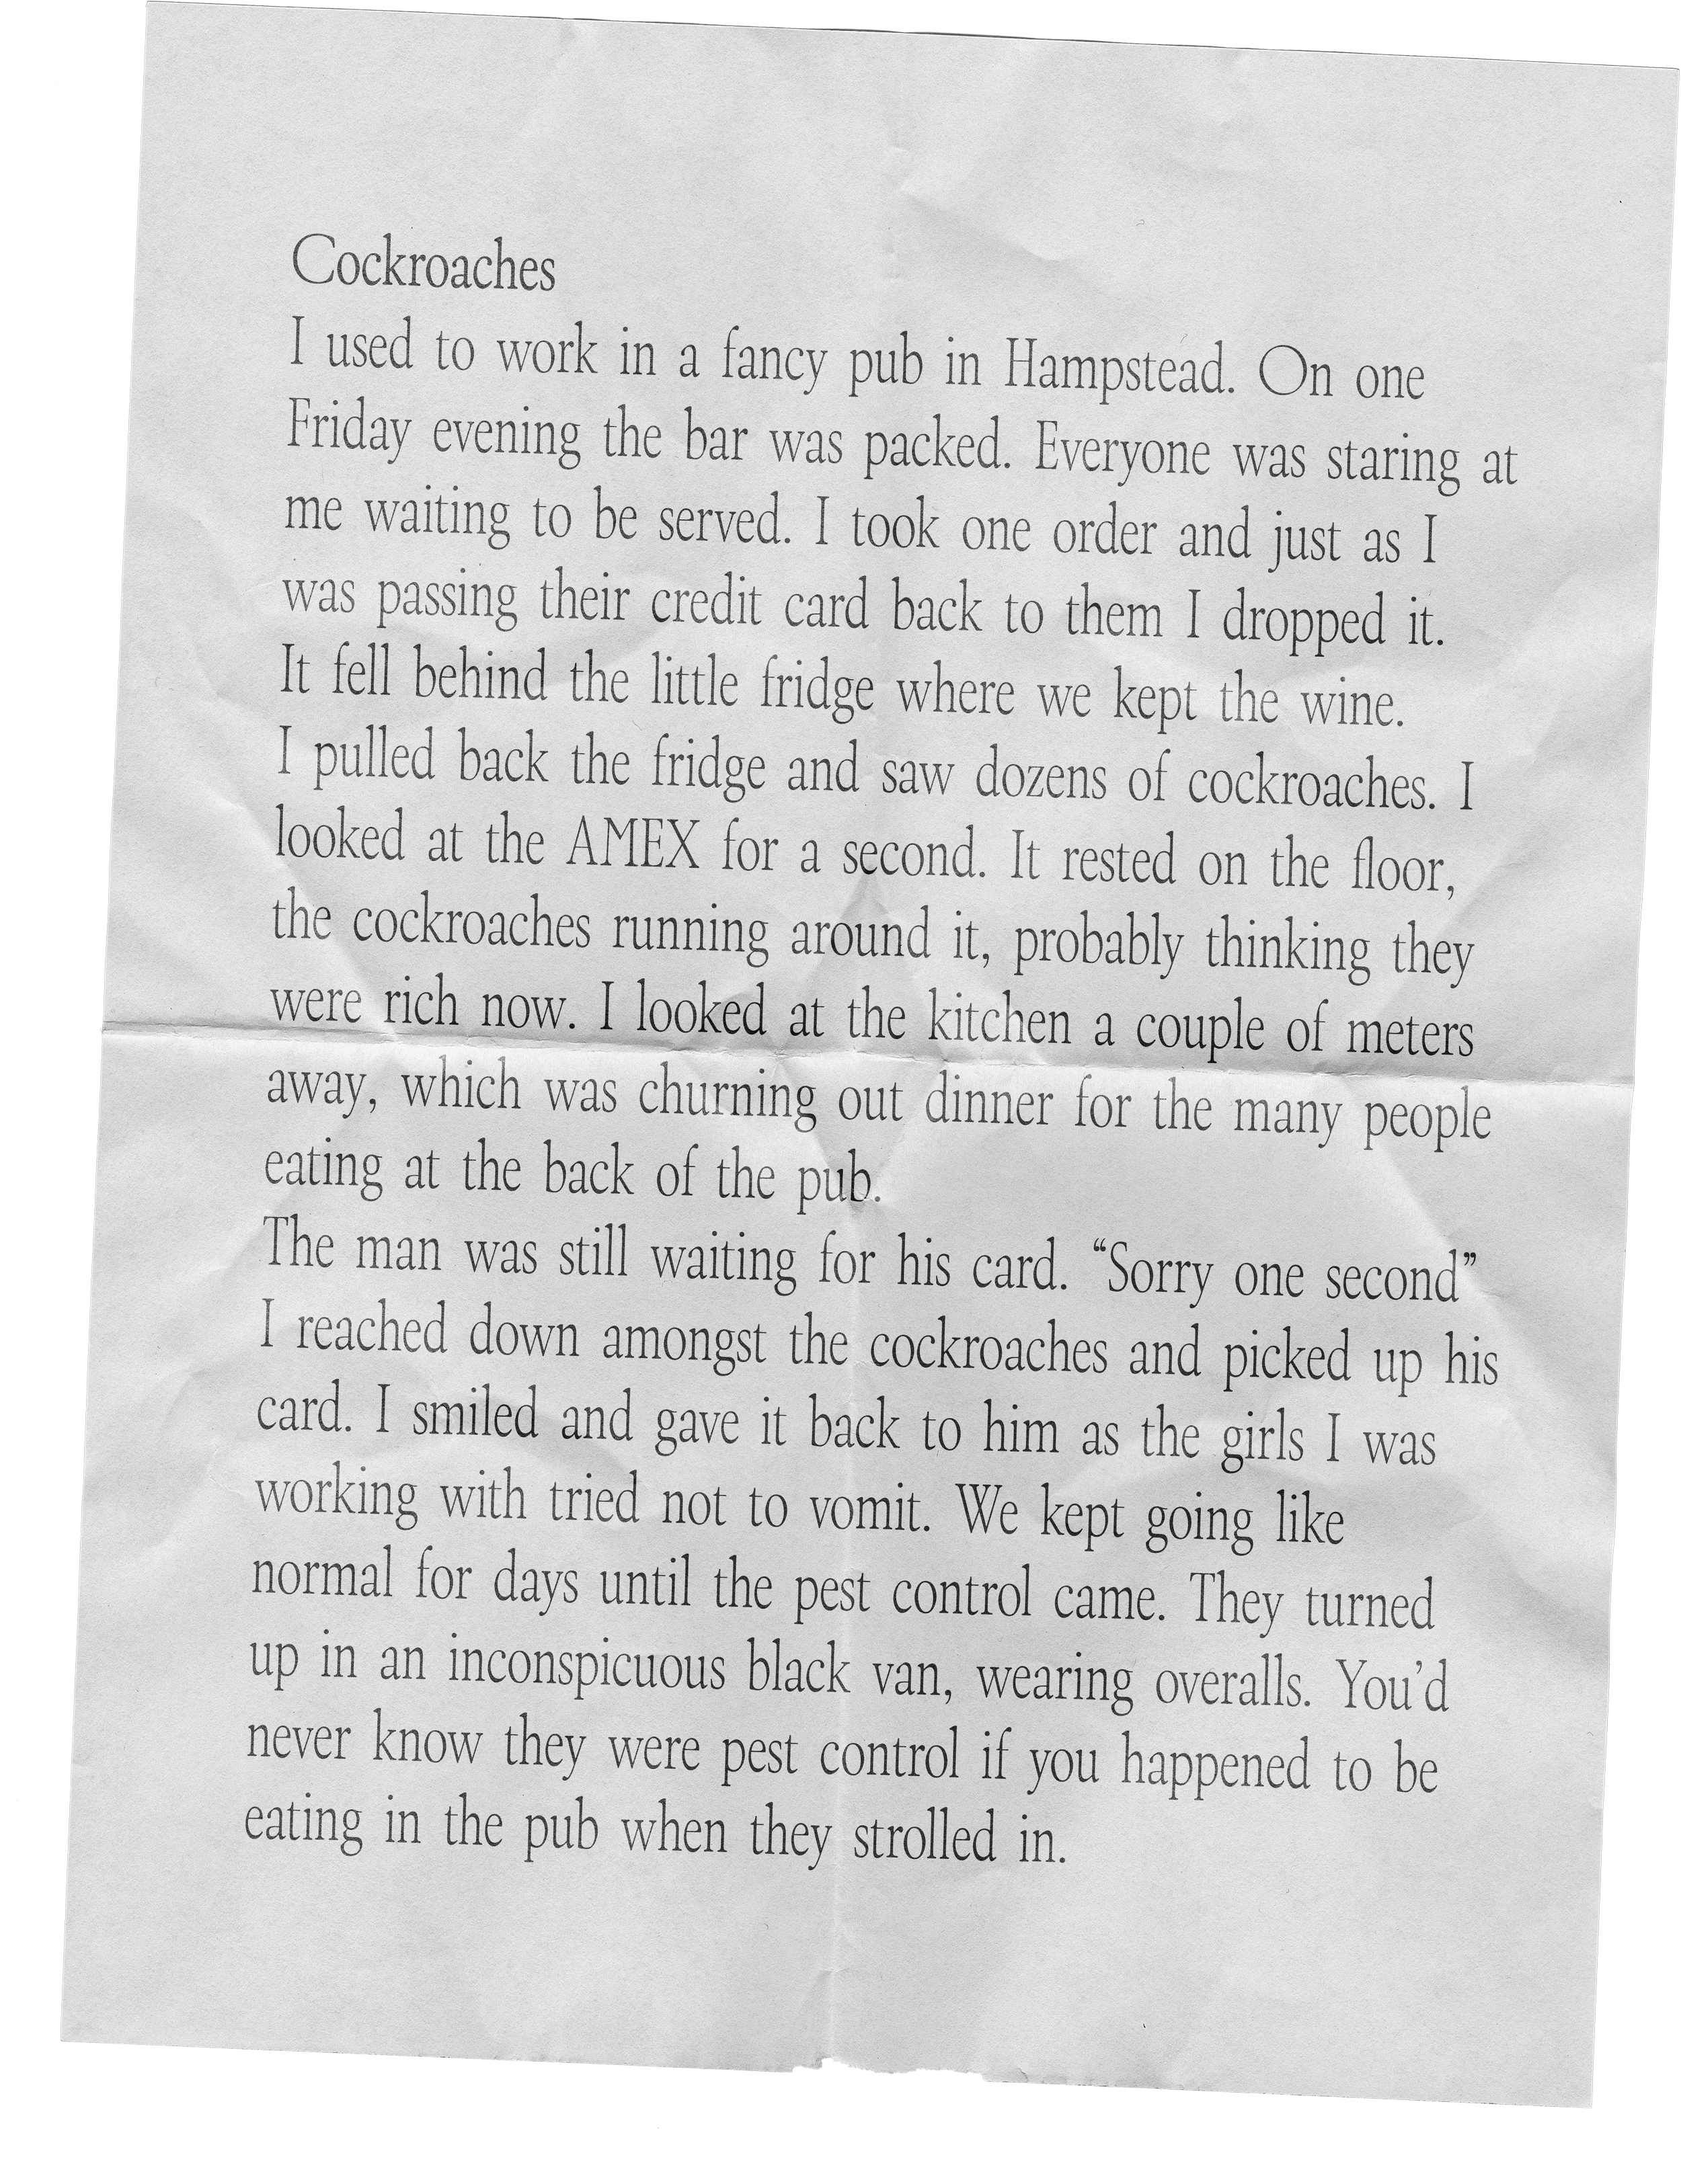 Cockroaches
I used to work in a fancy pub in Hampstead. On one
Friday evening the bar was packed. Everyone was staring at
me waiting to be served. I took one order and just as I
was passing their credit card back to them I dropped it.
It fell behind the little fridge where we kept the wine.
I pulled back the fridge and saw dozens of cockroaches. I
looked at the AMEX for a second. It rested on the floor,
the cockroaches running around it, probably thinking they
were rich now. I looked at the kitchen a couple of meters
away, which was churning out dinner for the many people
eating at the back of the pub.
The man was still waiting for his card. “Sorry one second”
I reached down amongst the cockroaches and picked up his
card. I smiled and gave it back to him as the girls I was
working with tried not to vomit. We kept going like
normal for days until the pest control came. They turned
up in an inconspicuous black van, wearing overalls. You’d
never know they were pest control if you happened to be
eating in the pub when they strolled in.